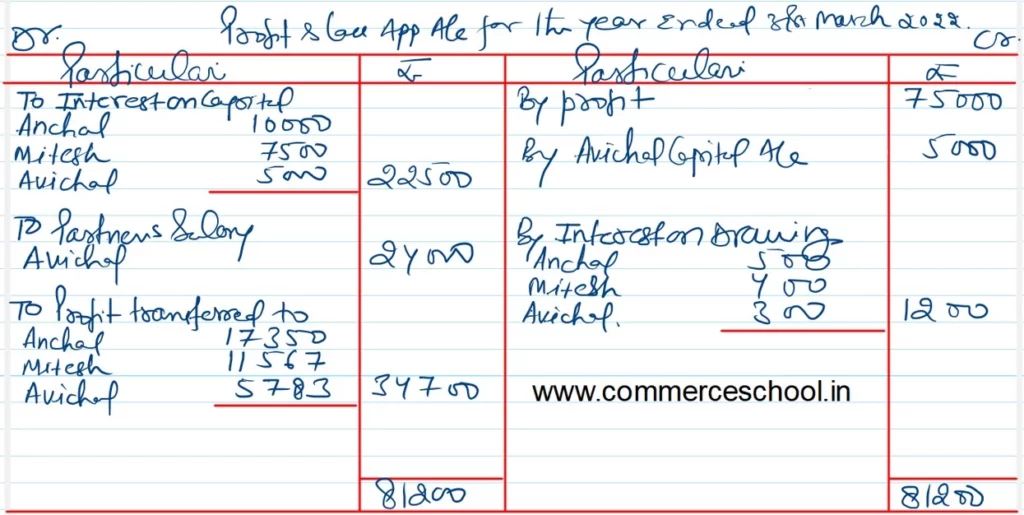 Dr. Profit & loss App A/c for the year ended 31st March 2022. Cr.
Particulars ₹ Particulars ₹
To Interest on Capital By profit 75000
Anchal 10000
Mitesh 7500 By Avichal Capital A/c 5000
Avichal 5000 22500
To Partners Salary By Interest on Drawings
Avichal 24000 Anchal 500
Mitesh 400
To Profit transferred to Avichal. 300 1200
Anchal 17350
Mitesh 11567
Avichal 5783 34700 www.commerceschool.in
81200 81200